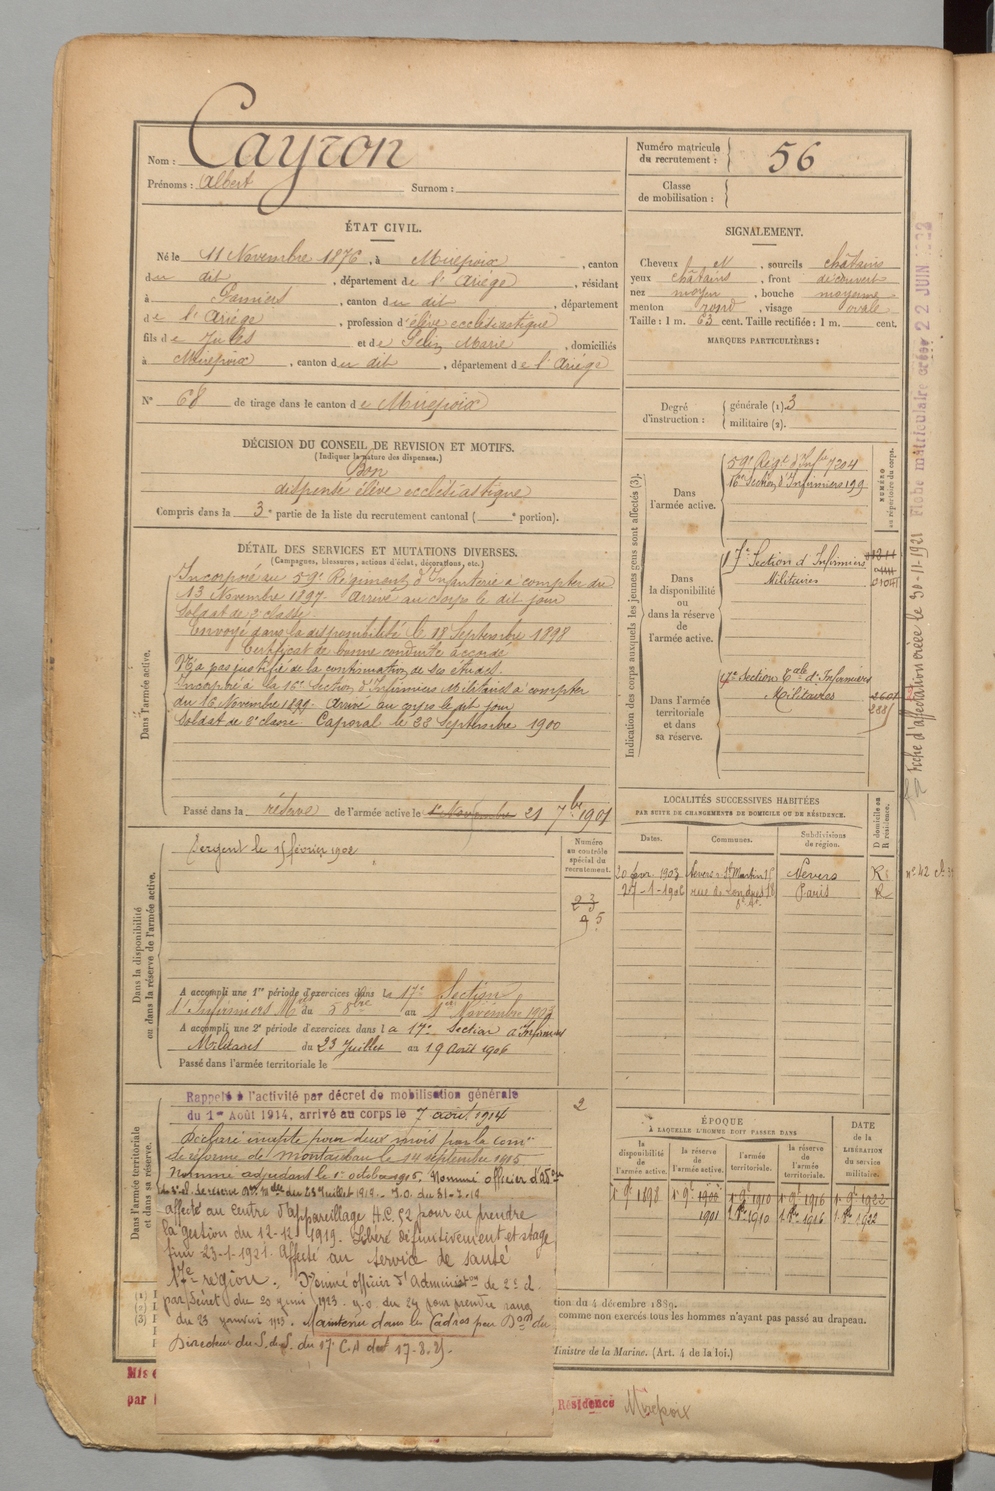 Nom : Cayron
Prénoms : Albert Surnom :
Numéro matricule du recrutement : 56
Classe de mobilisation :
ÉTAT CIVIL.
Né le 11 Novembre 1876, à Mirepoix, canton
du dit, département de l'Ariège, résidant
à Pamiers, canton du dit, département
de l'Ariège, profession d'élève ecclésiastique
fils de Jules et de Marie, domiciliés
à Mirepoix, canton du dit, département de l'Ariège
N° 68 de tirage dans le canton de Mirepoix
SIGNALEMENT.
Cheveux , sourcils châtains
yeux châtains, front découvert
nez moyen, bouche moyenne
menton rond, visage ovale
Taille : 1 m. 63 cent. Taille rectifiée : 1 m. cent.
MARQUES PARTICULIÈRES :
Degré d'instruction : générale (1). 3
militaire (2).
DÉCISION DU CONSEIL DE REVISION ET MOTIFS.
(Indiquer la nature des dispenses.)
Bon
dispensé élève ecclésiastique
Compris dans la 3e partie de la liste du recrutement cantonal ( e portion).
DÉTAIL DES SERVICES ET MUTATIONS DIVERSES.
(Campagnes, blessures, actions d'éclat, décorations, etc.)
Dans l'armée active.
Incorporé au 59e Régiment d'Infanterie à compter du
13 Novembre 1897. Arrivé au corps le dit jour
Soldat de 2e classe
Envoyé dans la disponibilité le 18 Septembre 1898
Certificat de bonne conduite accordé
N'a pas justifié de la continuation de ses études.
Incorporé à la 16e Section d'Infirmiers Militaires à compter
du 16 Novembre 1899. Arrivé au corps le dit jour
Soldat de 2e classe. Caporal le 23 Septembre 1900
Passé dans la réserve de l'armée active le 1er Novembre 21 7bre 1901
Indication des corps auxquels les jeunes gens sont affectés (3).
NUMÉRO au répertoire du corps.
Dans l'armée active.
59e Régt d'Inf 7204
16e Section d'Infirmiers 199
Dans la disponibilité ou dans la réserve de l'armée active.
17e Section d'Infirmiers
Militaires
Dans l'armée territoriale et dans sa réserve.
17e Section Torle d'Infirmiers
Militaires
Fiche d'affectation créée le 30-11-1921 Fiche matriculaire créée 22 JUIN
Dans la disponibilité ou dans la réserve de l'armée active.
Sergent le 15 février 1902
Numéro au contrôle spécial du recrutement.
23
95
A accompli une 1re période d'exercices dans la 17e Section
d'Infirmiers Mres du 5 8bre au 1er Novembre 1903
A accompli une 2e période d'exercices dans la 17e Section d'Infirmiers
Militaires du 23 Juillet au 19 Août 1906
Passé dans l'armée territoriale le
LOCALITÉS SUCCESSIVES HABITÉES
PAR SUITE DE CHANGEMENTS DE DOMICILE OU DE RÉSIDENCE.
Dates. Communes. Subdivisions de région. D domicile ou R résidence.
20 1903 Nevers St Martin 15 Nevers R
27-1-1906 rue de Londres 18 Paris R
Dans l'armée territoriale et dans sa réserve.
Rappelé à l'activité par décret de mobilisation générale
du 1er Août 1914, arrivé au corps le 7 août 1914
2
Déclaré inapte pour deux mois par la comon
de réforme de Montauban le 14 septembre 1915
Nommé adjudant le 1er octobre 1915. Nommé officier d'Adon
de réserve du 23 Juillet 1919. J.O. du 31-7-19
affecté au centre d'appareillage H.C. 52 pour en prendre
la gestion du 12-12-1919. Libéré définitivement et stage
fini 23-1-1921. Affecté au service de santé
17e région. Nommé officier d'Administon de 2e cl.
par décret du 20 juin 1923. J.O. du 24 pour prendre rang
du 23 janvier 1923. Maintenu dans les Cadres par Don du
Directeur du S. de S. du 17e C.A. du 17-8-25.
ÉPOQUE
À LAQUELLE L'HOMME DOIT PASSER DANS
la disponibilité de l'armée active. la réserve de l'armée active. l'armée territoriale. la réserve de l'armée territoriale. DATE de la LIBÉRATION du service militaire.
1er 9bre 1898 1er 9bre 1900 1er 9bre 1910 1er 9bre 1916 1er 9bre 1922
1901 1er 8bre 1910 1er 8bre 1916 1er 8bre 1922
tion du 4 décembre 1889.
comme non exercés tous les hommes n'ayant pas passé au drapeau.
Ministre de la Marine. (Art. 4 de la loi.)
Mis e
par
Résidence Mirepoix